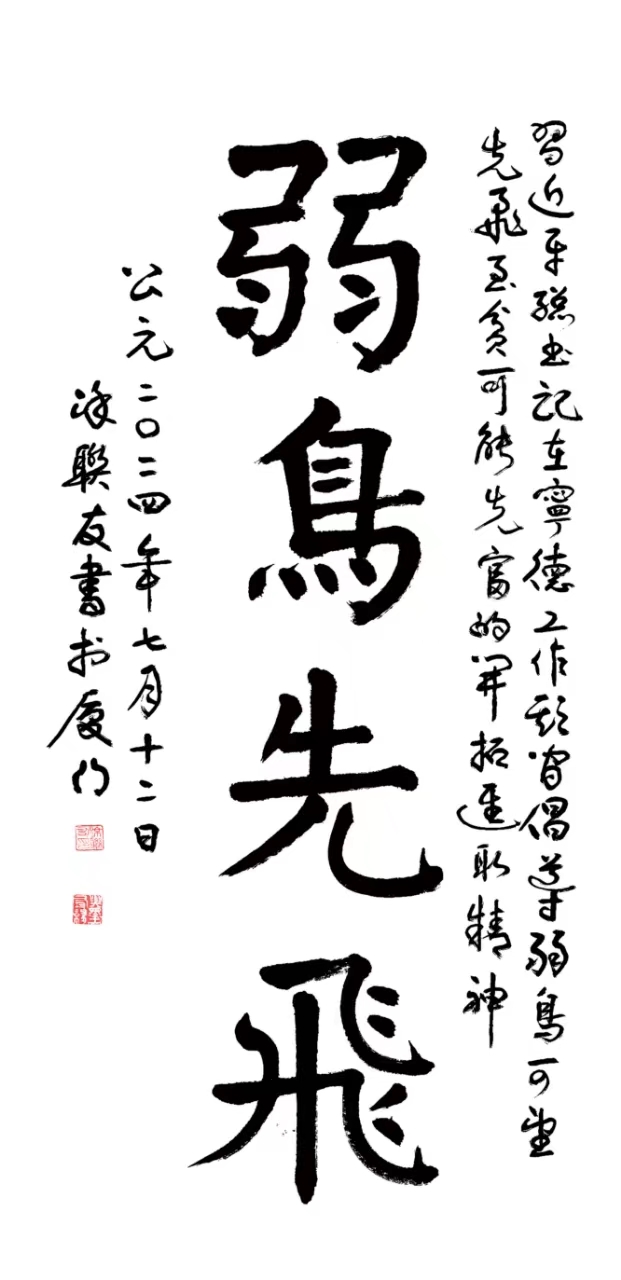 習近平總書記在寧德工作期間倡導弱鳥可望
先飛至貧可能先富的開拓進取精神
弱鳥先飛
公元二〇二四年七月十二日
涂聯友書於廈門